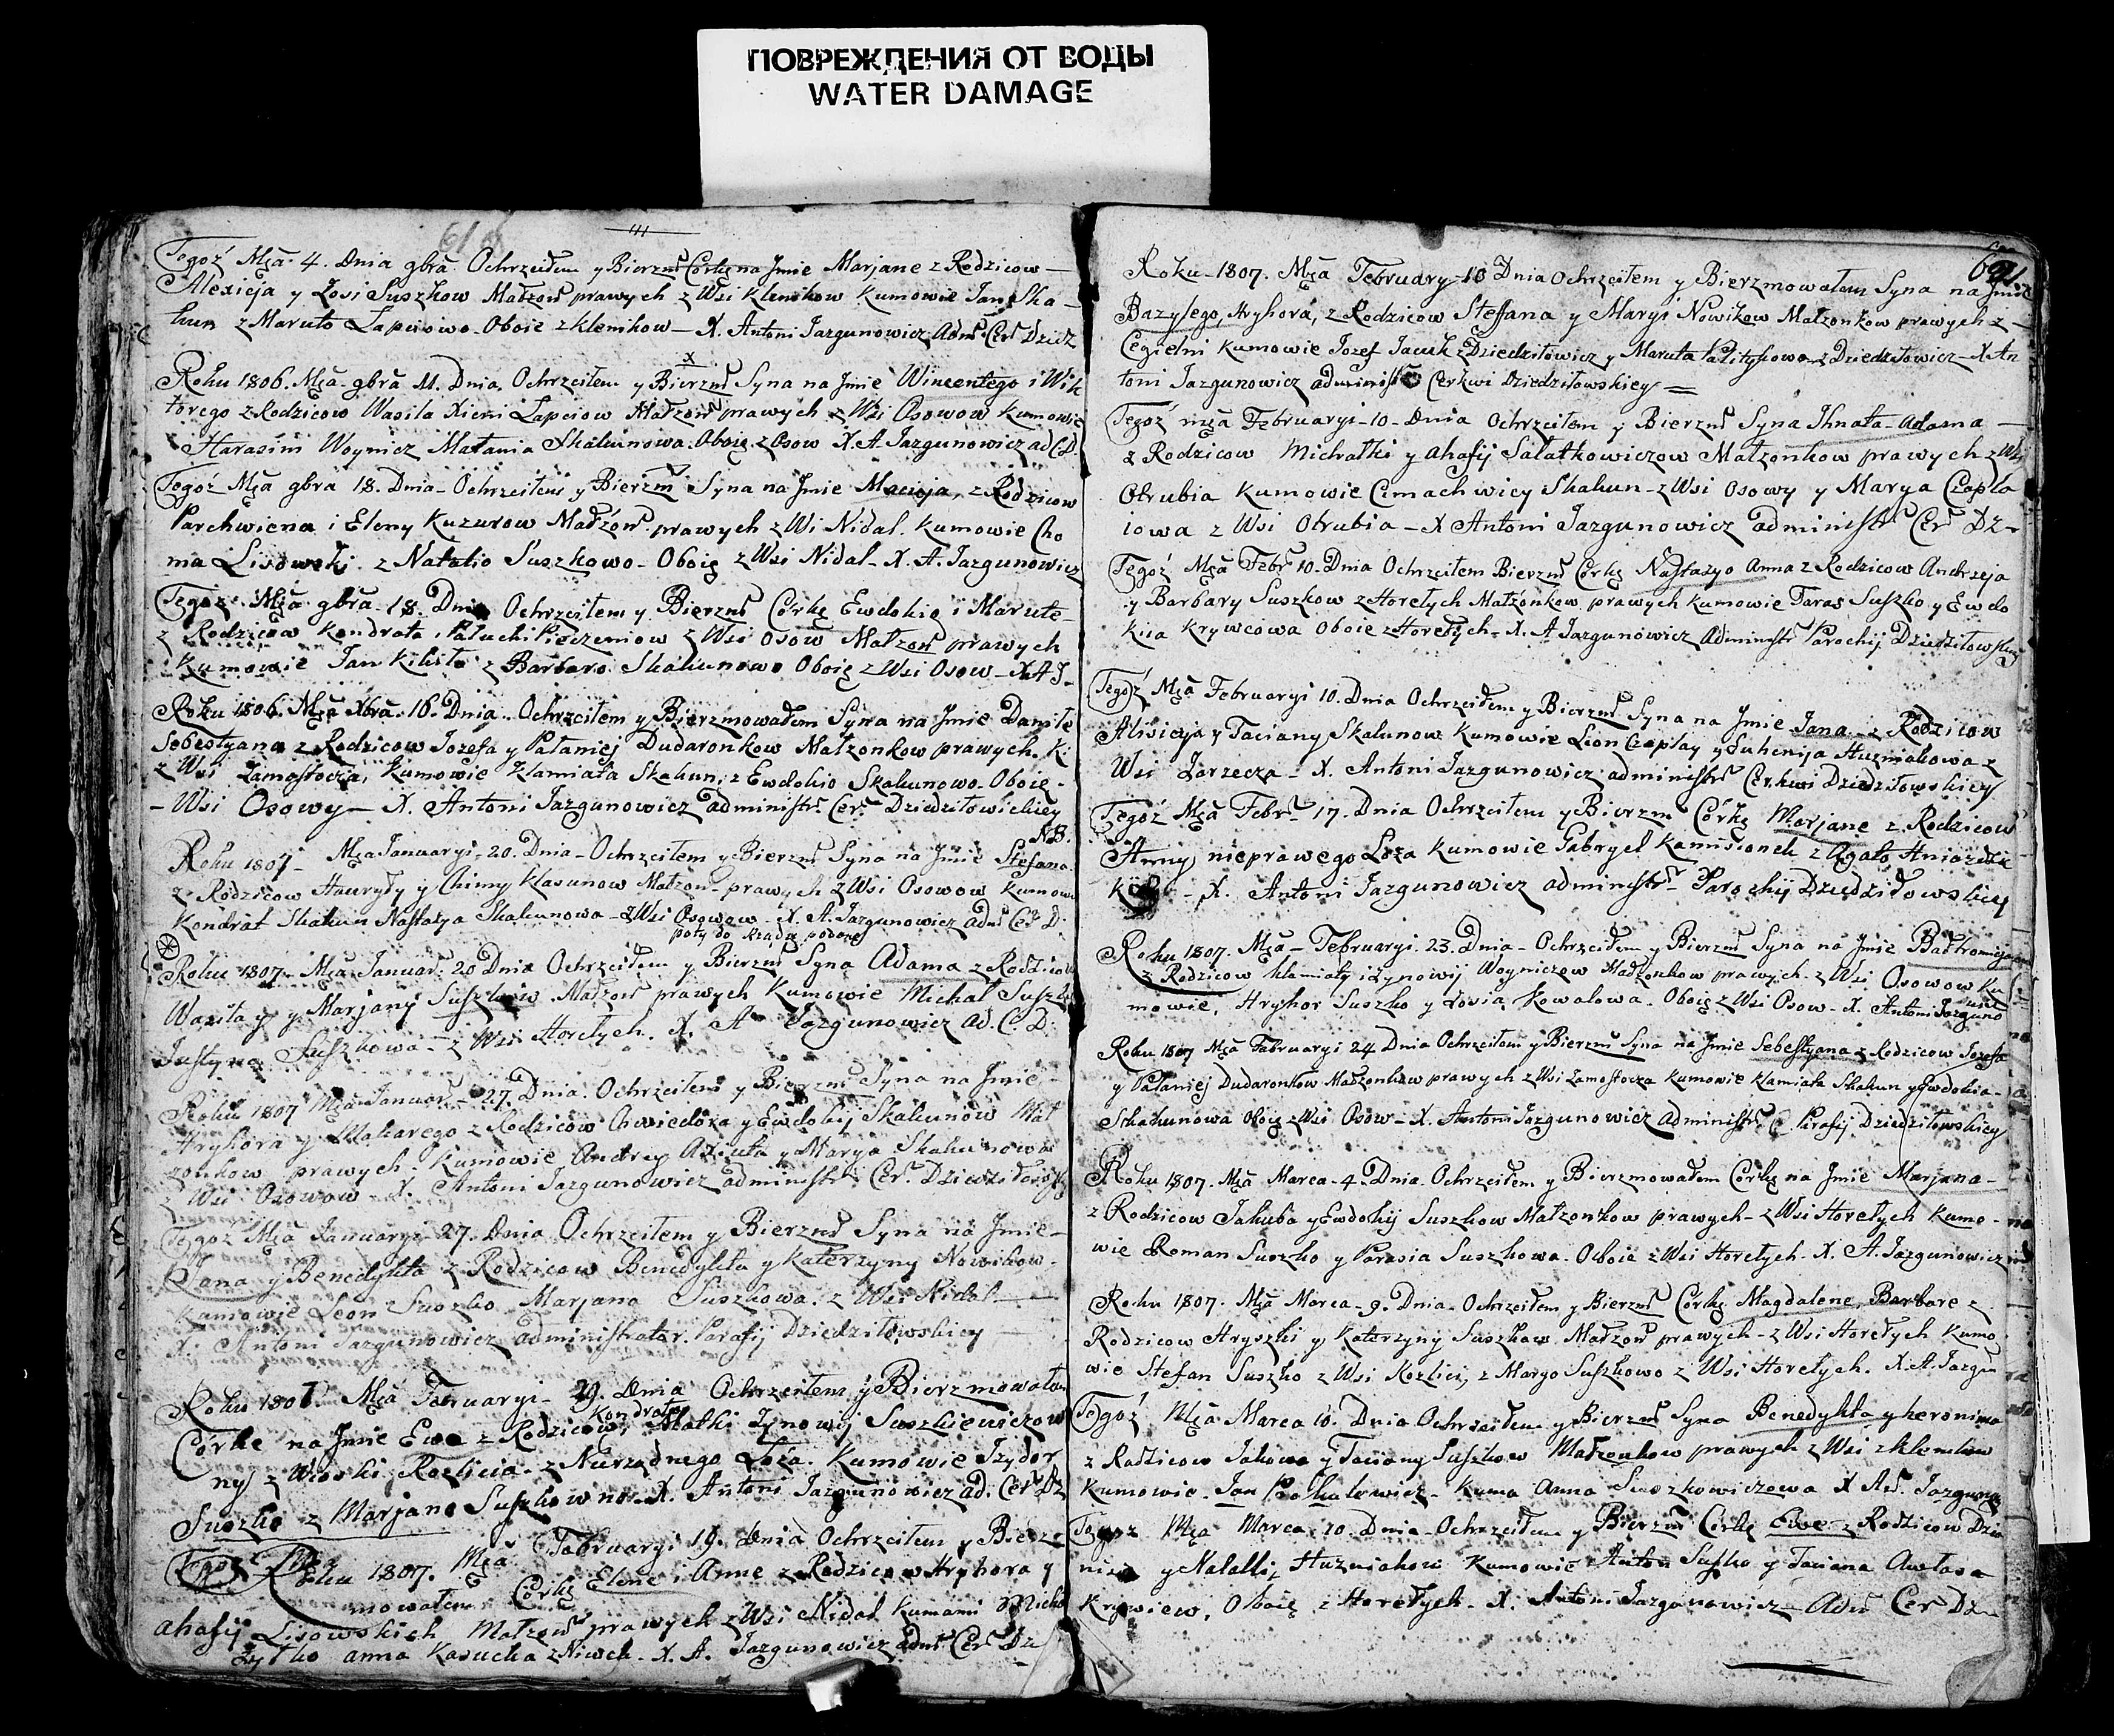 ПОВРЕЖДЕНИЯ ОТ ВОДЫ
WATER DAMAGE
61
Tegoż Mca 4. Dnia 9bra Ochrzciłem y Bierzm Corkę na Jmie Marjane z Rodzicow
Alexieja y Zosi Suszkow Małzon prawych z Wsi Klenikow Kumowie Jan Ska-
kun z Maruto Łapciowo Oboie z Klenikow X. Antoni Jazgunowicz Adm. Cer Dziedz
Roku 1806. Mca 9bra 11. Dnia. Ochrzciłem y Bierzm Syna na Jmie Wincentego i Wik
torego z Rodzicow Wasila Xieni Łapciow Małzon prawych z Wsi Osowow Kumowie
Harasim Woynicz Matania Skakunowa. Oboie z Osow X. A. Jazgunowicz ad C D.
Tegoż Mca 9bra 18. Dnia Ochrzciłem y Bierzm Syna na Jmie Macieja, z Rodzicow
Parchwiena i Eleny Kuzurow Małżon. prawych z Wi Nidal. Kumowie Cho
ma Lisowski z Natalio Suszkowo Oboie z Wsi Nidal X. A. Jazgunowicz
Tegoż Mca 9bra 18. Dnia Ochrzciłem y Bierzm Corkę Ewdokię i Marute
z Rodzicow Kondrata i Pałuchi z Wsi Osow Małzon prawych
Kumowie Jan z Barbaro Skakunowo Oboie z Wsi Osow X A J.
Roku 1806. Mca Xbra. 16. Dnia. Ochrzciłem y Bierzmowałem Syna na Jmie Daniłę
Sebestyana z Rodzicow Jozefa y Pałaniej Dudaronkow Małzonkow prawych.
z Wsi Zamostocza, Kumowie Klamiata Skakun z Ewdokio Skakunowo Oboie
Wsi Osowy X. Antoni Jazgunowicz administr. Cer. Dziedziłowickiey
NB.
Roku 1807 Mca Januaryi 20. Dnia Ochrzciłem y Bierzm Syna na Jmie Stefana
z Rodzicow Hauryły y Chimy Klasunow Małzon prawych z Wsi Osowow Kumowie
Kondrat Skakun Nastazya Skakunowa z Wsi Osowow X. A. Jazgunowicz adm Cer D.
poty do Rządu podano
Roku 1807. Mca Januar. 20 Dnia Ochrzciłem y Bierzm Syna Adama z Rodzicow
Wasila y Marjany Suszkow Małzon prawych Kumowie Michał Suszko
Justyna Suszkowa z Wsi Horełych. X. A Jazgunowicz ad. C. D.
Roku 1807 Mca Januar 27. Dnia. Ochrzciłem y Bierzm Syna na Jmie
Hryhora y Makarego z Rodzicow Chwiedora y Ewdokij Skakunow Mał
zonkow prawych. Kumowie Andrey y Marya Skakunowa
z Wsi Osowow X. Antoni Jazgunowicz administr Cer. Dziedziłowsk
Tegoz Mca Januaryi 27. Dnia Ochrzciłem y Bierzm Syna na Jmie
Jana y Benedykta z Rodzicow Benedykta y Katerzyny Nowikow
Kumowie Leon Suszko Marjana Suszkowa z Wsi Nidal
X. Antoni Jazgunowicz administrator Parafij Dziedziłowskiey
Roku 1807 Mca Februaryi 29. Dnia Ochrzciłem y Bierzmowałem
Kondrata
Córke na Jmie Ewe z Rodzicow, Matki Zynowij Suszkiewiczow
ny z Wioski Kozlicia z Nierządnego Łoża. Kumowie Izydor
Suszko z Marjano Suszkowno X. Antoni Jazgunowicz ad. Cer Dz
Roku 1807. Mca Februaryi 19. Dnia Ochrzciłem y Bierz
mowałem Corkę Elene i Anne z Rodzicow Hryhora y
ahafij Lisowskich Małzon prawych z Wsi Nidal Kumami Micha
Zytko anna Kasucka z Niwek. X. A. Jazgunowicz adm Cer Dz
Roku 1807. Mca February 10 Dnia Ochrzciłem y Bierzmowałem Syna na Jmie
Bazylego, Hryhora, z Rodzicow Steffana y Maryi Nowikow Małzonkow prawych z
Cegielni Kumowie Jozef Jacuk z Dziedziłowicz y Maruta z Dziedziłowicz X An
toni Jazgunowicz administr Cerkwi Dziedziłowskiey
Tegoż mca Februaryi 10. Dnia Ochrzciłem y Bierzm Syna Ihnata Adama
z Rodzicow Michałki y ahafij Sałatkowiczow Małzonkow prawych z Wsi
Otrubia Kumowie Skakun z Wsi Osowy y Marya Czapla
iowa z Wsi Otrubia X Antoni Jazgunowicz administr Cer Dz
Tegoż Mca Febr 10. Dnia Ochrzciłem Bierzm Corkę Nastazyo Anna z Rodzicow Andrzeja
y Barbary Suszkow z Horełych Małżonkow prawych Kumowie Taras Suszko y Ewdo
kiia Krywcowa Oboie z Horełych X. A Jazgunowicz Administr Parochij Dziedziłowskiey
Tegoż Mca Februaryi 10. Dnia Ochrzciłem y Bierzm Syna na Jmie Jana z Rodzicow
Alisieya y Taciany Skakunow Kumowie Leon Czaplay y Euhenija Huzniakowa z
Wsi Zarzecza X. Antoni Jazgunowicz administr Cerkwi Dziedziłowskiey
Tegoż Mca Febr 17. Dnia Ochrzciłem y Bierzm Córkę Marjane z Rodzicow
Anny nieprawego Łoża Kumowie Gabryel Kamisionek z Agato
X. Antoni Jazgunowicz administr Parochij Dziedziłowskiey
Roku 1807. Mca Februaryi. 23. Dnia Ochrzciłem y Bierzm Syna na Jmie Bałtromieja
z Rodzicow Klamiaty i Zynowij Woyniczow Małzonkow prawych z Wsi Osowow Ku
mowie, Hryhor Suszko y Zosia Kowalowa. Oboie z Wsi Osow X. Antoni Jazguno
Roku 1807 Mca Februaryi 24 Dnia Ochrzciłem y Bierzm Syna na Jmie Sebestyana z Rodzicow Jozefa
y Pałaniej Dudaronkow Małzonkow prawych z Wsi Zamostocza Kumowie Klamiata Skakun y Ewdokia
Schakunowa Oboie z Wsi Osow X. Antoni Jazgunowicz administr Parafij Dziedziłowskiey
Roku 1807. Mca Marca 4. Dnia. Ochrzciłem y Bierzmowałem Corkę na Jmie Marjana
z Rodzicow Jakuba y Ewdokij Suszkow Małzonkow prawych z Wsi Horełych Kumo
wie Roman Suszko y Parasia Suszkowa Oboie z Wsi Horełych. X. A. Jazgunowicz
Roku 1807. Mca Marca 9. Dnia Ochrzciłem y Bierzm Córkę Magdalene, Barbare z
Rodzicow Hryszki y Katerzyny Suszkow Małzon prawych z Wsi Horełych Kumo
wie Stefan Suszko z Wsi Kozlicz, z Maryo Suszkowo z Wsi Horełych. X. A. Jazgu
Tegoż Mca Marca 10. Dnia Ochrzciłem y Bierzm Syna Benedykta y heronima
z Rodzicow Jakowa y Taciany Suszkow Małzonkow prawych z Wsi z Klenikow
Kumowie Jan Kuma Anna Suszkowiczowa X An. Jazgunow
Tegoz Mca Marca 10. Dnia Ochrzciłem y Bierzm Corkę Ewe z Rodzicow
y Natalli Huzniakow Kumowie Anton Suszko y Taciana Awłasa
Krywiew, Oboie z Horełych. X. Antoni Jazgunowicz Adm Cer Dz